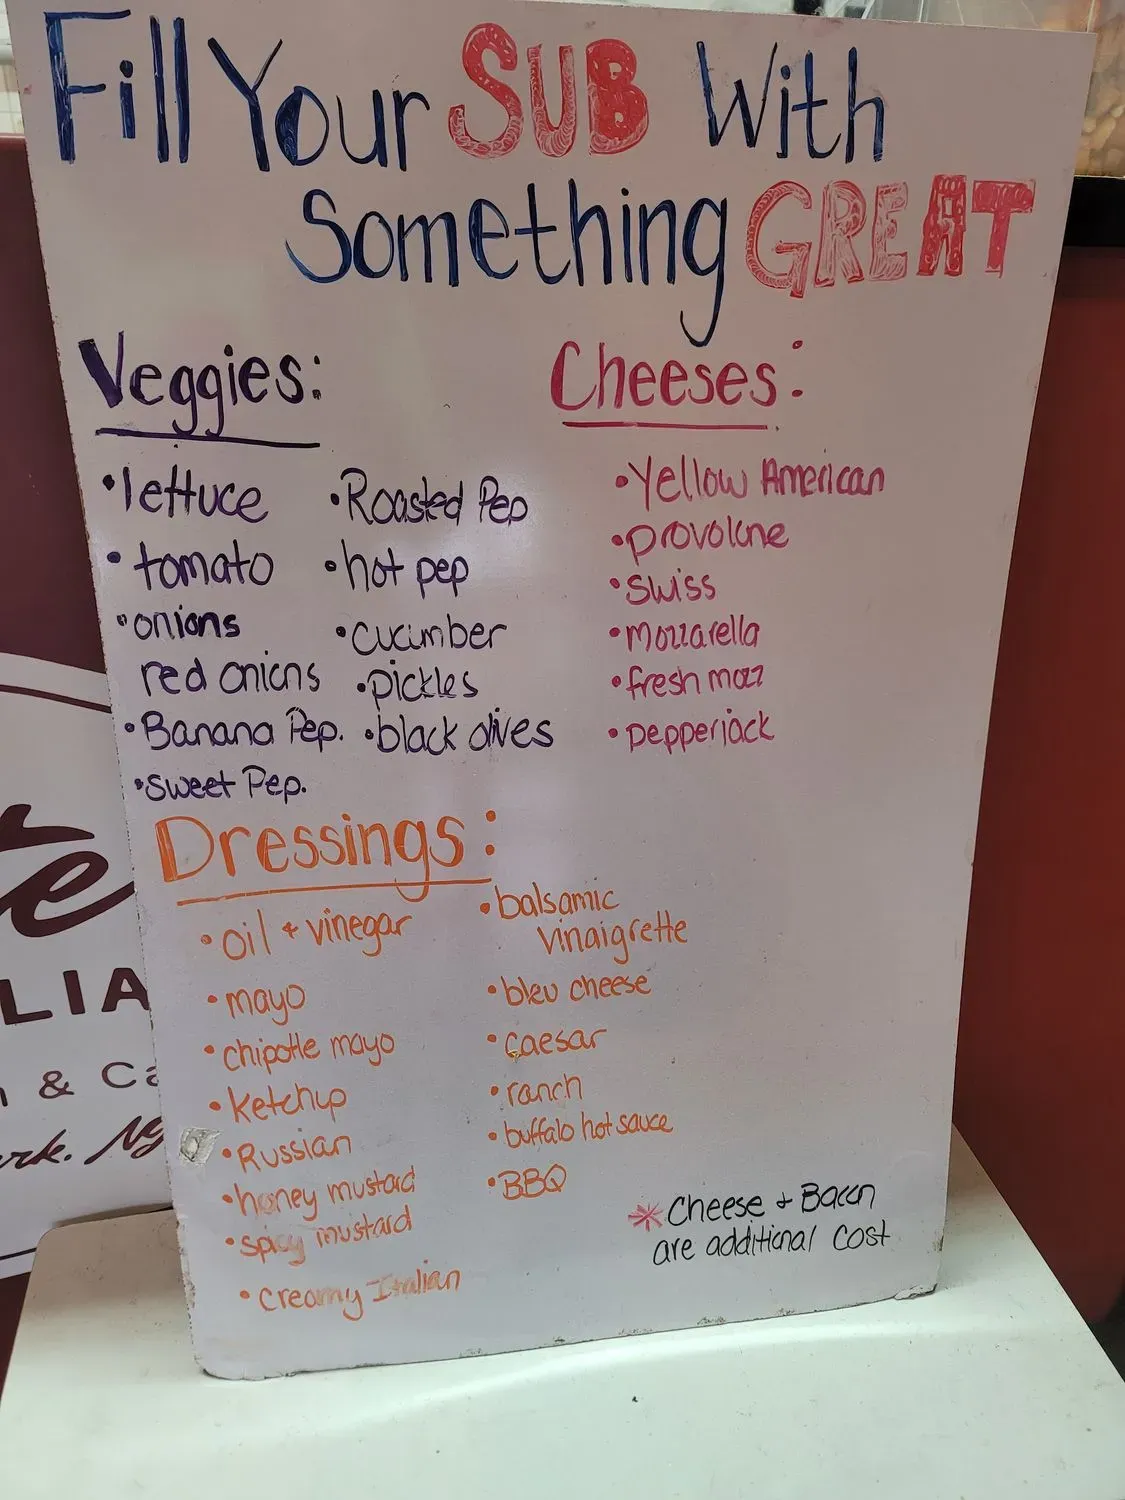 Fill Your SUB With
Something GREAT
Veggies:
• lettuce
• tomato
• onions
red onions
• Banana Pep.
• sweet Pep.
• Roasted Pep
• hot pep
• cucumber
• pickles
• black olives
Cheeses:
• Yellow American
• provolone
• swiss
• mozzarella
• fresh mozz
• pepperjack
Dressings:
• oil + vinegar
• mayo
• chipotle mayo
• ketchup
• Russian
• honey mustard
• spicy mustard
• creamy Italian
• balsamic
vinaigrette
• bleu cheese
• caesar
• ranch
• buffalo hot sauce
• BBQ
* Cheese + Bacon
are additional cost
LIA
&
NY